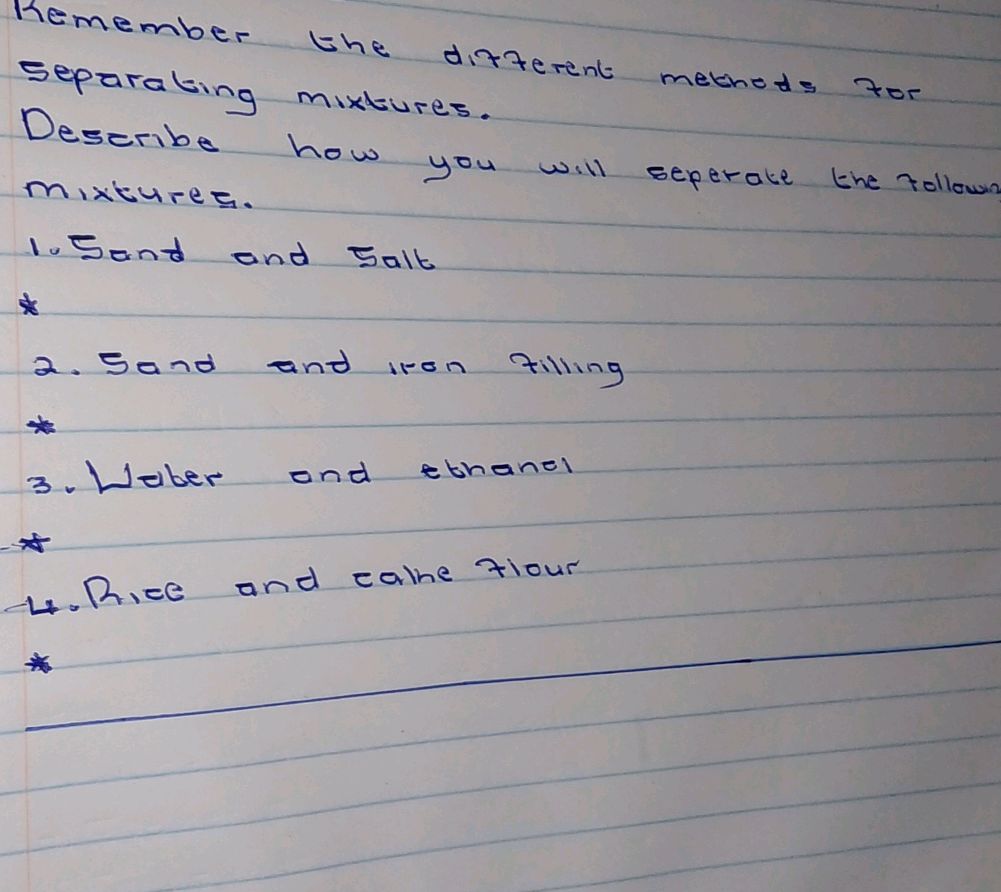 Remember the different methods for
separating mixtures.
Describe how you will seperate the
mixtures.
1. Sand and Salt
*
2. Sand and iron filling
*
3. Water and ethanol
*
4. Rice and flour
*